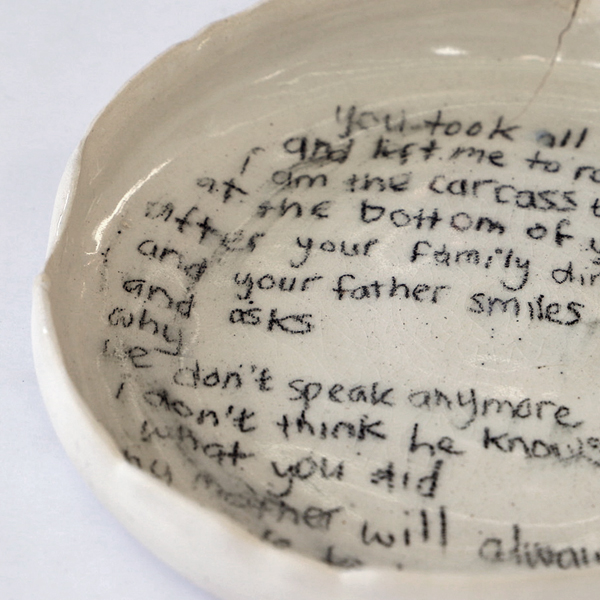 you took all
and left me to
I am the carcass
at the bottom of
after your family
and your father smiles
and asks
why
we don't speak anymore
I don't think he knows
what you did
my mother will